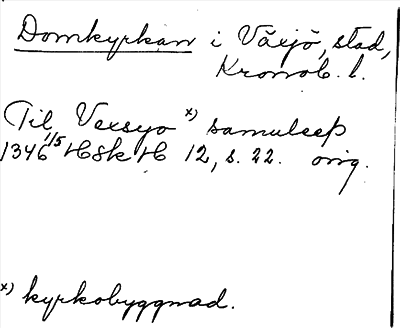 Domkyrkan i Växjö, stad,
Kronob. l.
Til Vexsyo x) samuleep
1346 1/5 HSH H 12, s. 22. orig.
x) kyrkobyggnad.